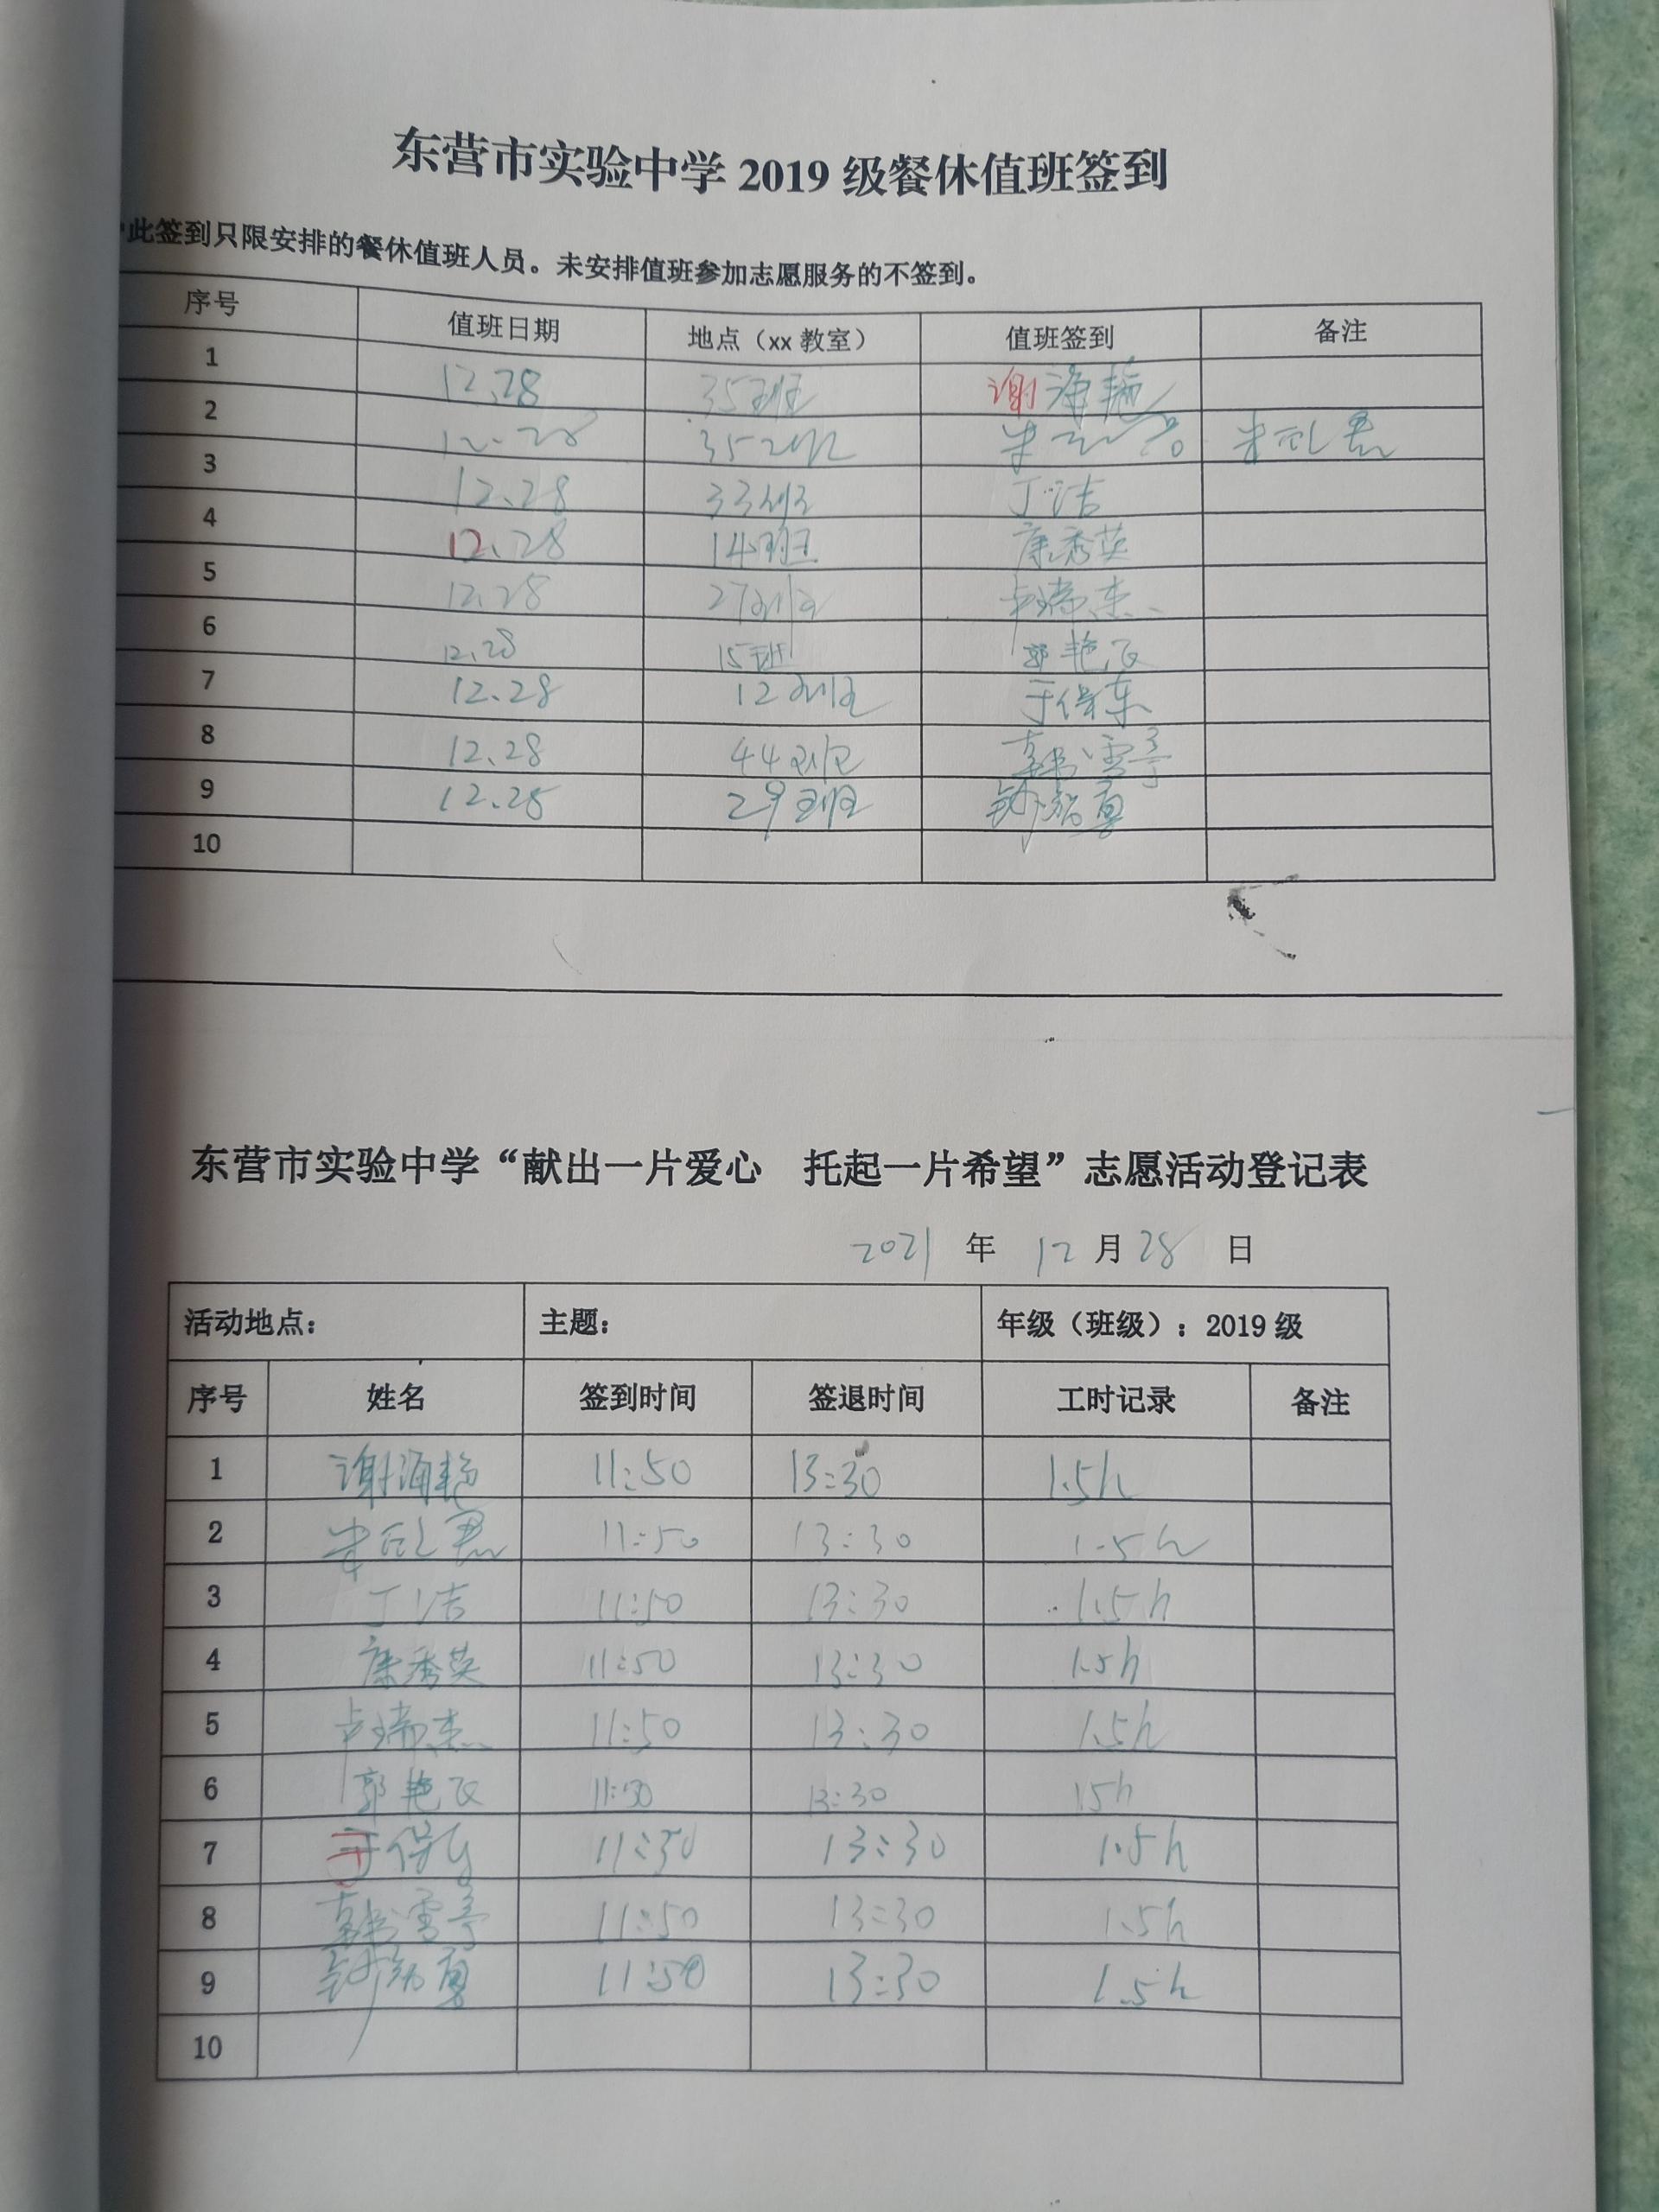 东营市实验中学 2019 级餐休值班签到
此签到只限安排的餐休值班人员。未安排值班参加志愿服务的不签到。
序号 值班日期 地点（xx 教室） 值班签到 备注
1 12.28 35班 谢海艳
2 12.28 35班
3 12.28 33班 丁洁
4 12.28 14班 康秀英
5 12.28 27班 卢瑞杰
6 12.28 15班 郭艳飞
7 12.28 12班 于保东
8 12.28 44班 韩雪亭
9 12.28 29班
10
东营市实验中学“献出一片爱心 托起一片希望”志愿活动登记表
2021 年 12 月 28 日
活动地点： 主题： 年级（班级）：2019 级
序号 姓名 签到时间 签退时间 工时记录 备注
1 谢海艳 11:50 13:30 1.5h
2 11:50 13:30 1.5h
3 丁洁 11:50 13:30 1.5h
4 康秀英 11:50 13:30 1.5h
5 卢瑞杰 11:50 13:30 1.5h
6 郭艳飞 11:50 13:30 1.5h
7 于保东 11:50 13:30 1.5h
8 韩雪亭 11:50 13:30 1.5h
9 11:50 13:30 1.5h
10